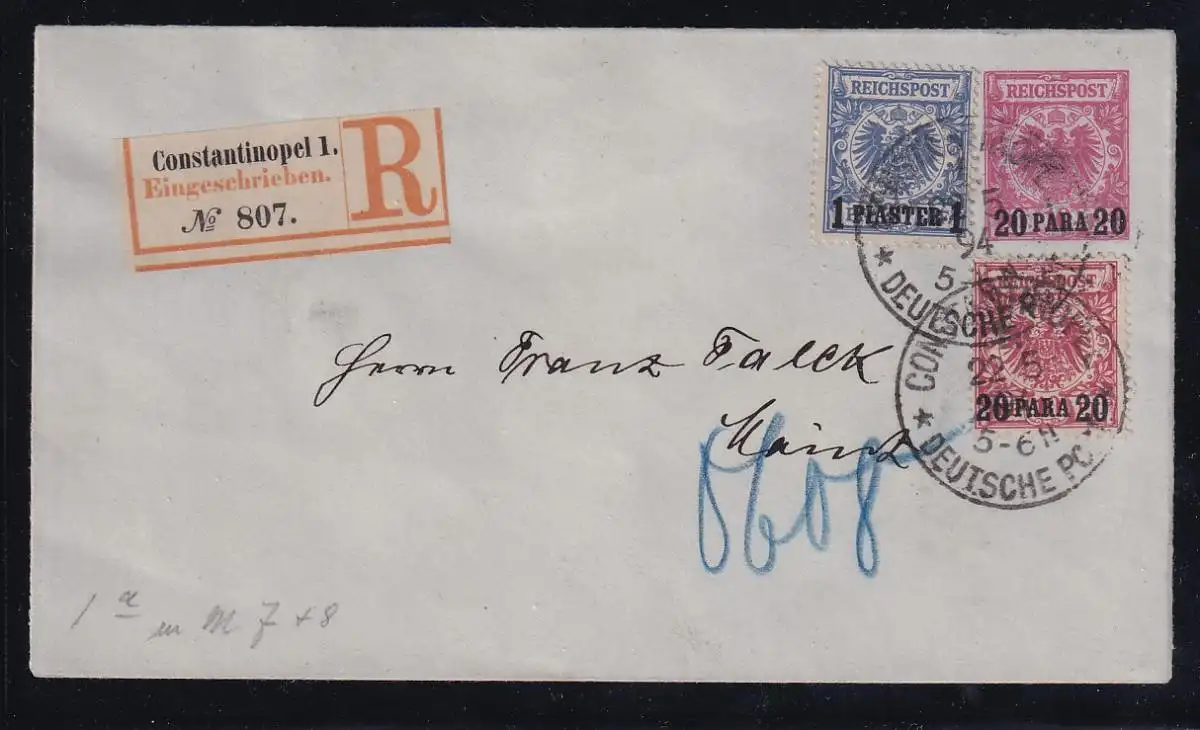 Constantinopel 1.
Eingeschrieben.
№ 807.
R
REICHSPOST
1 PIASTER 1
REICHSPOST
20 PARA 20
94
5-
DEUTSCHE
REICHSPOST
20 PARA 20
CONS
22 5
5-6 N
* DEUTSCHE PO
Herrn Franz Falck
Mainz
1 a
m M 7 + 8